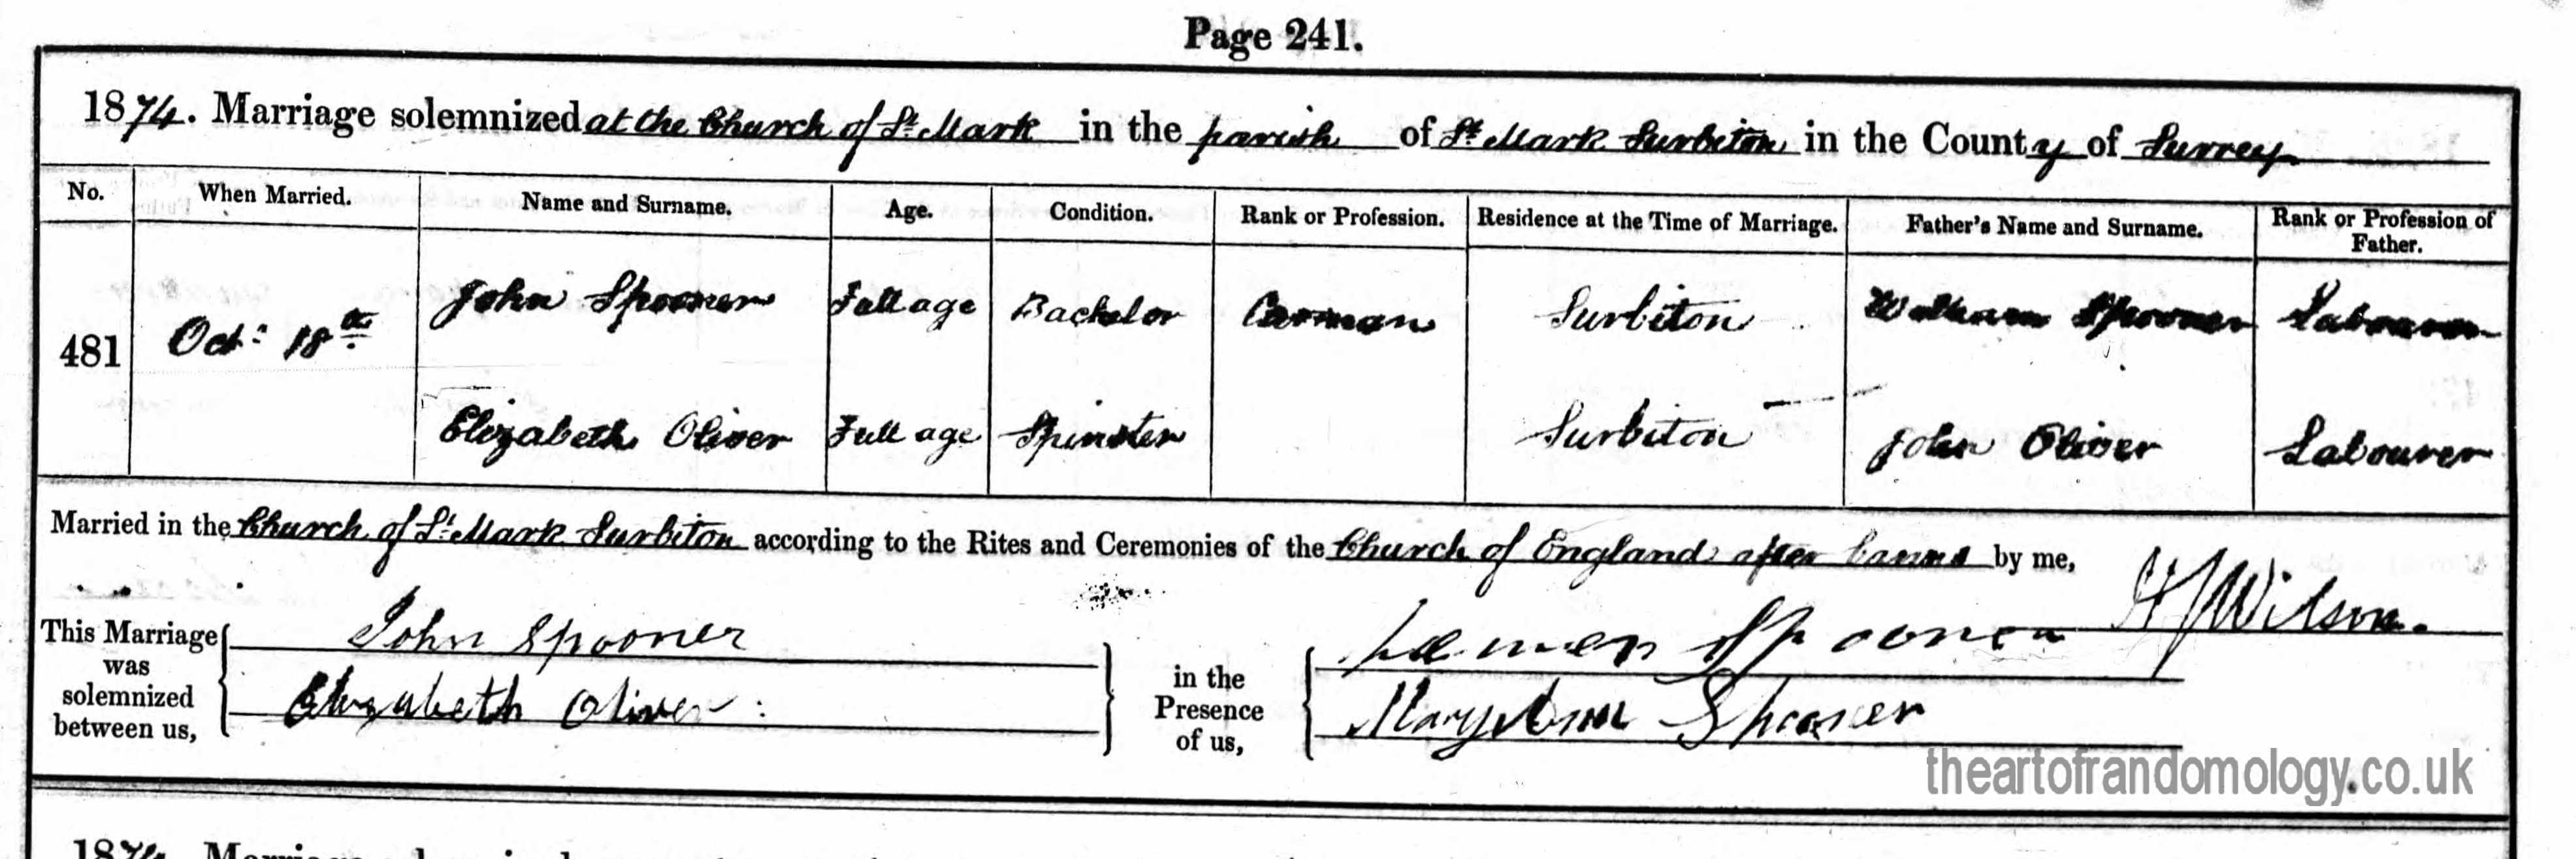 Page 241.
1874. Marriage solemnized at the Church of St. Mark in the parish of St. Mark Surbiton in the County of Surrey
No. When Married. Name and Surname. Age. Condition. Rank or Profession. Residence at the Time of Marriage. Father's Name and Surname. Rank or Profession of Father.
481 Oct: 18th John Spooner Full age Bachelor Carman Surbiton William Spooner Labourer
Elizabeth Oliver Full age Spinster Surbiton John Oliver Labourer
Married in the Church of St. Mark Surbiton according to the Rites and Ceremonies of the Church of England after banns by me, H J Wilson.
This Marriage was solemnized between us, John Spooner Elizabeth Oliver in the Presence of us, Spooner Mary Ann Spooner
theartofrandomology.co.uk
1874. Marriage